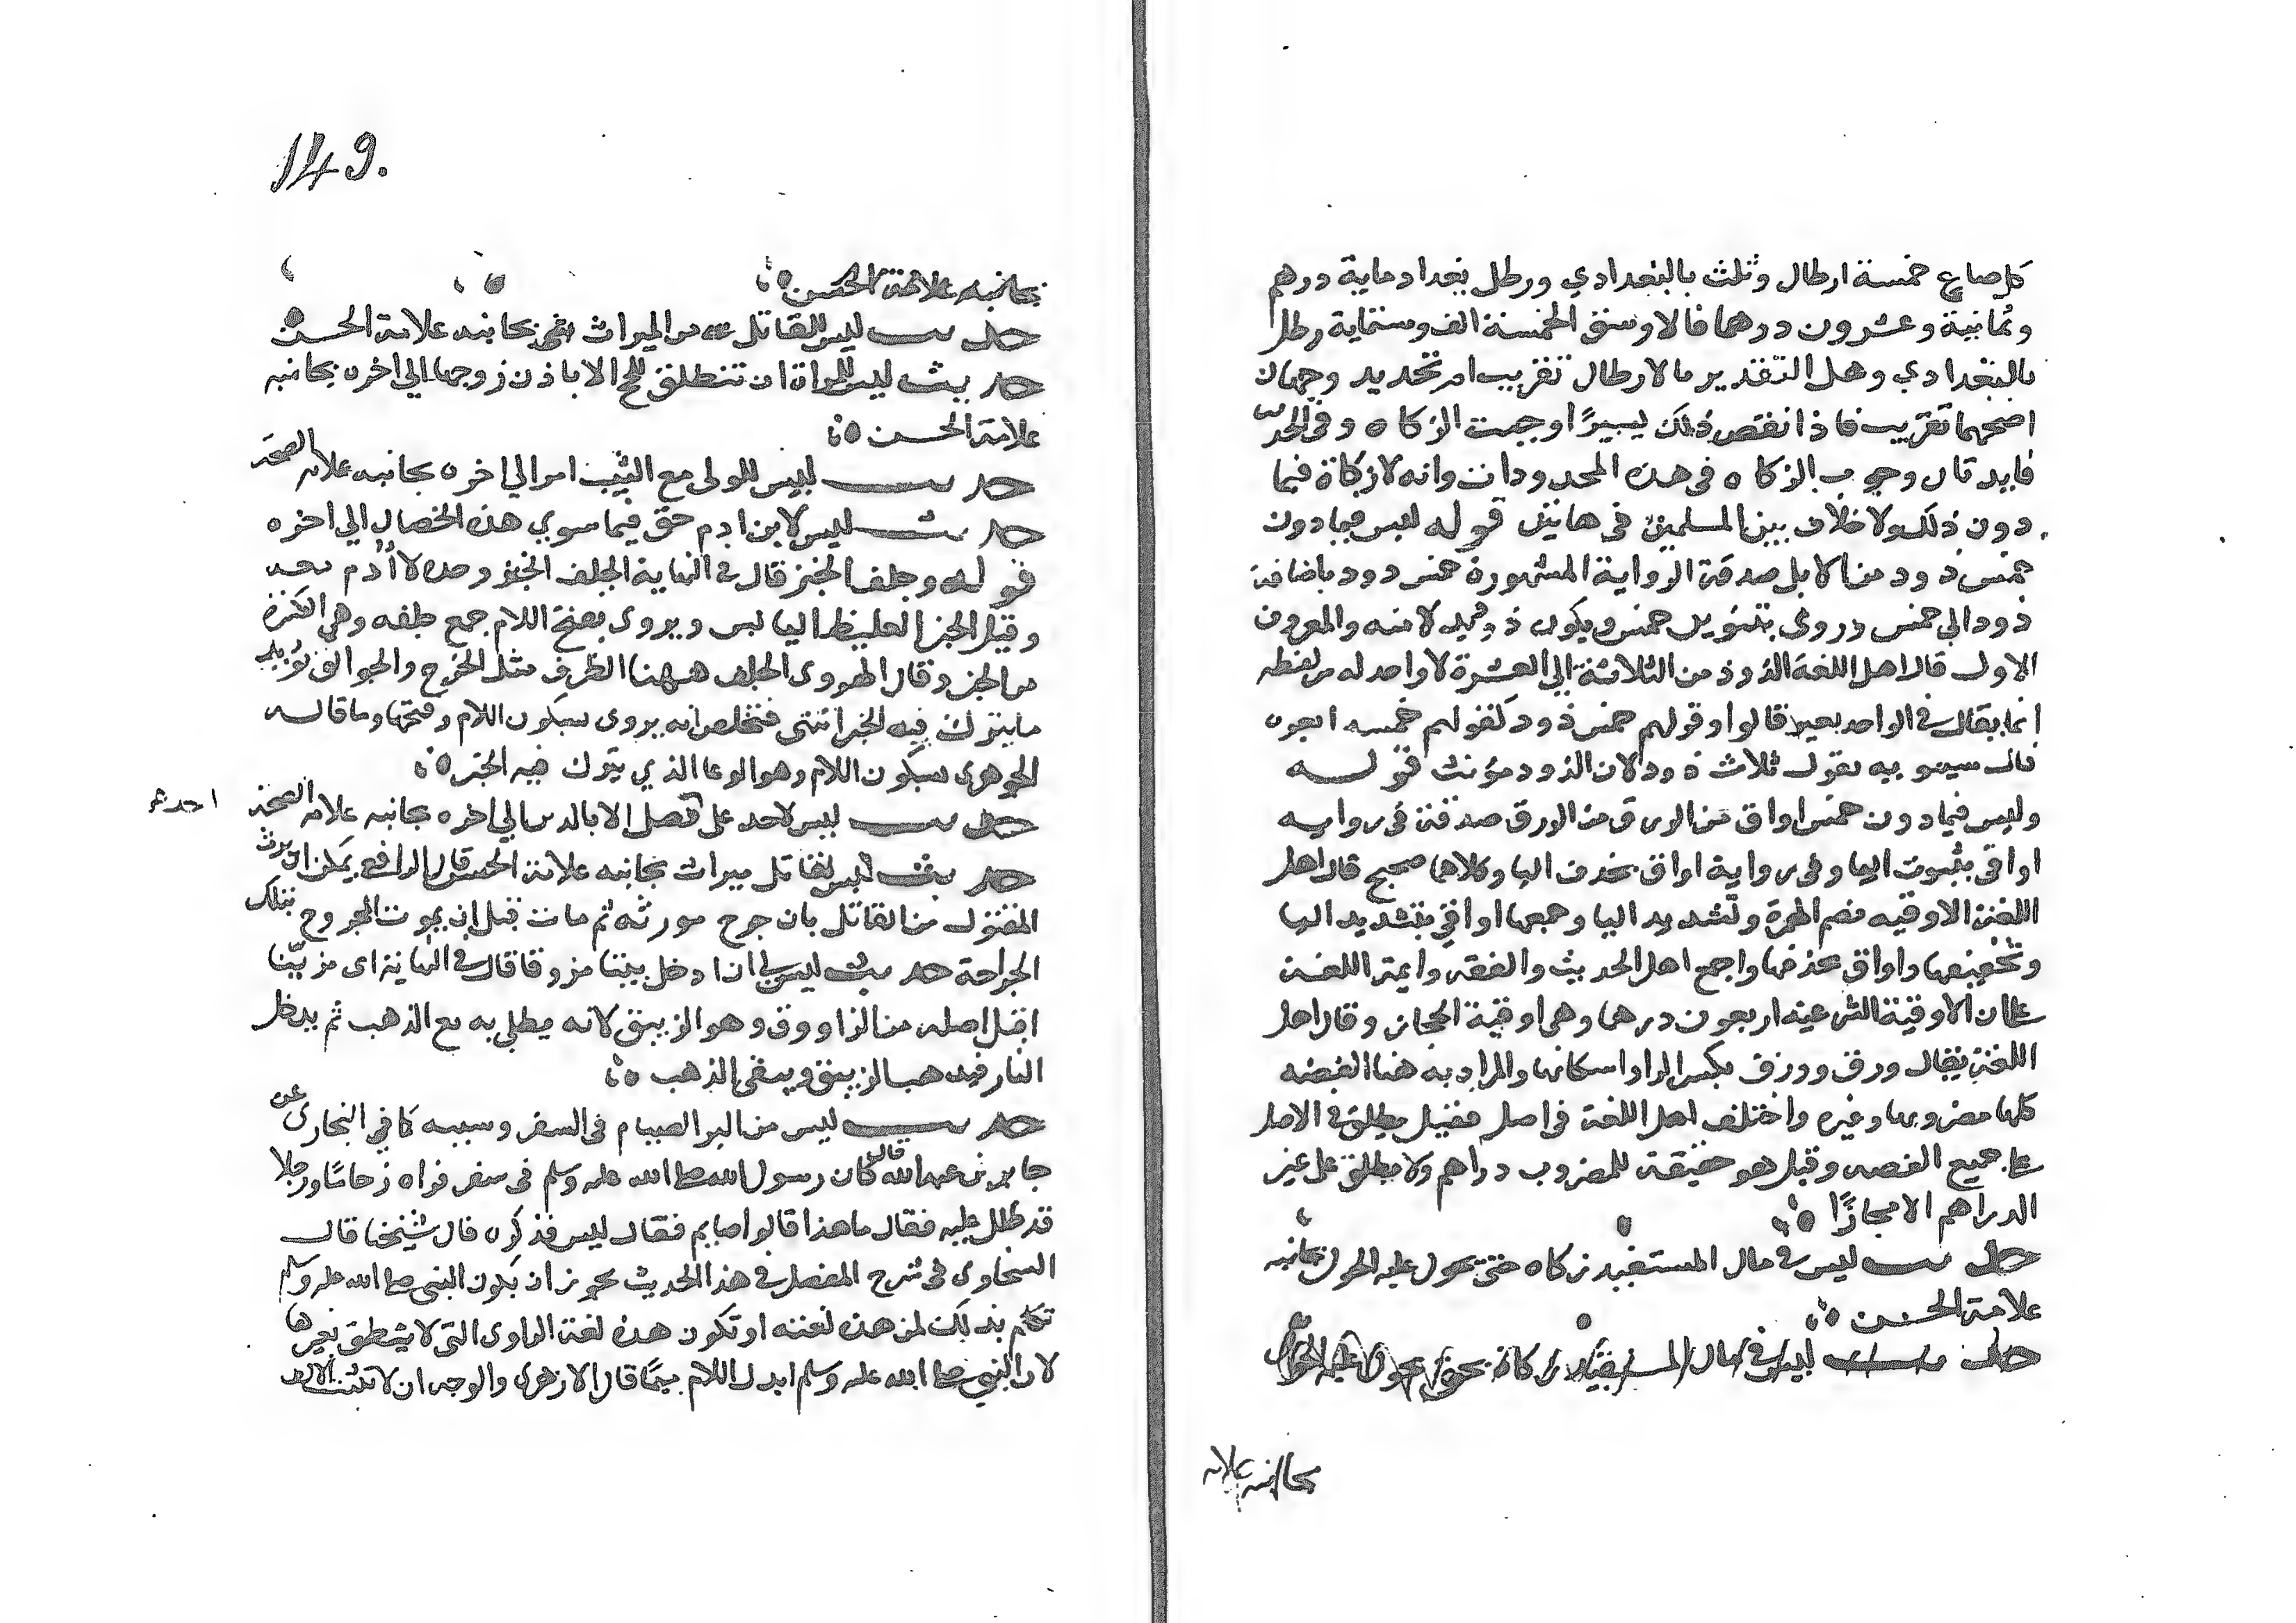 كل صاع خمسة ارطال وثلث بالبغدادي ورطل بغداد ماية درهم
وثمانية وعشرون درهما فالاوسق الخمسة الف وستماية رطل
بالبغدادي وهل التقدير بالارطال تقريب ام تحديد وجهان
اصحهما تقريب فاذا نقص ذلك يسيرًا وجبت الزكاه وفي الحديث
فايدتان وجوب الزكاه في هذه المحدودات وانه لا زكاة فيما
دون ذلك ولا خلاف بين المسلمين في هاتين قوله ليس فيما دون
خمس ذود من الابل صدقة الرواية المشهورة خمس ذود باضافة
ذود الي خمس وروي بتنوين خمس ويكون ذود بدلا منه والمعروف
الاول قال اهل اللغة الذود من الثلاثة الي العشرة لا واحد له من لفظه
انما يقال في الواحد بعير قالوا وقولهم خمس ذود كقولهم خمسه ابعره
قال سيبويه يقول ثلاث ذود لان الذود مؤنث قوله
وليس فيما دون خمس اواق من الورق من الورق صدقة في روايه
اواقي بثبوت اليا وفي رواية اواق بحذف اليا وكلاهما صحيح قال اهل
اللغة الاوقيه بضم الهمزة وتشديد اليا وجمعها اواقي بتشديد اليا
وتخفيفها واواق بحذفها واجمع اهل الحديث والفقه وايمة اللغة
علي ان الاوقية الشرعية اربعون درهما وهي اوقية الحجاز وقال اهل
اللغة يقال ورق وورق بكسر الرا واسكانها والمراد به هنا الفضه
كلها مضروبها وغيره واختلف اهل اللغة في اصل فقيل يطلق في الاصل
علي جميع الفضه وقيل هو حقيقة للمضروب دراهم ولا يطلق علي غير
الدراهم الا مجازًا ٥
حديث ليس في مال المستفيد زكاه حتي يحول عليه الحول بجانبه
علامة الحسن ٥
حديث ليس في مال المستفيد زكاة حتي يحول عليه الحول
بجانبه علامه
149.
بجانبه علامة الحسن ٥
حديث ليس للقاتل من الميراث شي بجانبه علامة الحسن
حديث ليس للمراة ان تنطلق للحج الا باذن زوجها الي اخره بجانبه
علامة الحسن ٥
حديث ليس للولي مع الثيب امر الي اخره بجانبه علامة الصحة
حديث ليس لابن ادم حق فيما سوي هذه الخصال الي اخره
قوله وجلف الخبز قال في النهاية الجلف الخبز وحده لا أدم معه
وقيل الخبز الغليظ اليابس ويروي بفتح اللام جمع جلفه وهي الكسرة
من الخبز وقال الهروي الجلف ههنا الظرف مثل الخرج والجوالق يريد
ما يترك فيه الخبز انتهى فتخلص انه يروي بسكون اللام وفتحها وما قاله
الجوهري بسكون اللام وهو الوعا الذي يترك فيه الخبز ٥
حديث ليس لاحد على احد فضل الا بالدين الي اخره بجانبه علامة الصحة
حديث ليس لقاتل ميراث بجانبه علامة الحسن قال الرافعي يمكن ان يرث
المقتول من القاتل بان جرح مورثه ثم مات قبل ان يموت المجروح بتلك
الجراحة حديث ليس لي ان ادخل بيتا مزوقا قال في النهاية اي مزينا
اقبل اصله من الزاووق وهو الزيبق لانه يطلي به مع الذهب ثم يدخل
النار فيذهب الزيبق ويبقى الذهب ٥
حديث ليس من البر الصيام في السفر وسببه كما في البخاري عن
جابر بن عبدالله قال كان رسول الله صلى الله عليه وسلم في سفر فراه زحاما ورجلا
قد ظلل عليه فقال ما هذا قالوا صايم فقال ليس فذكره قال شيخنا قال
السخاوي في شرح المفصل في هذا الحديث يجوز ان يكون النبي صلى الله عليه وسلم
تكلم بذلك لمن هذه لغته او تكون هذه لغة الراوي التي لا ينطق بغيرها
لا ان النبي صلى الله عليه وسلم ابدل اللام ميمًا قال الازهري والوجه ان لا تثبت الالف